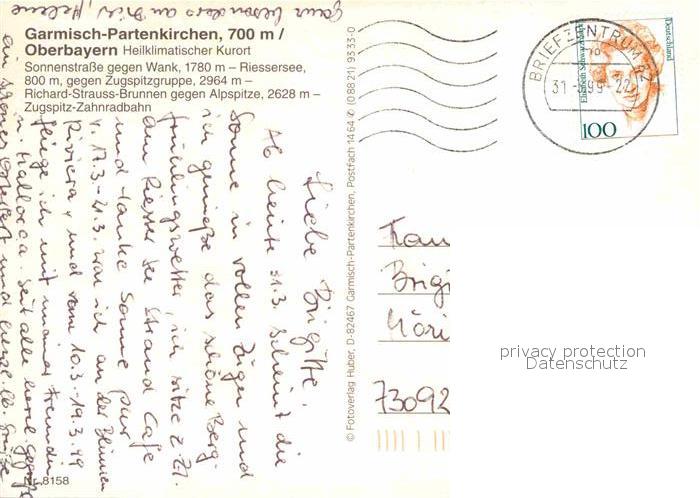 ganz besonders an Dich, Helene
Garmisch-Partenkirchen, 700 m /
Oberbayern Heilklimatischer Kurort
Sonnenstraße gegen Wank, 1780 m – Riessersee,
800 m, gegen Zugspitzgruppe, 2964 m –
Richard-Strauss-Brunnen gegen Alpspitze, 2628 m –
Zugspitz-Zahnradbahn
Liebe Brigitte,
Ab heute 31.3. scheint die
Sonne in vollen Zügen und
ich genieße das schöne Berg-
frühlingswetter, ich sitze z.Zt.
am Riesser See Strand Cafe
und tanke Sonne pur
v. 17.3.-21.3. war ich an der Blumen
Riviera u. und vom 10.3.-19.3.99
fliege ich mit meiner Freundin
n. Mallorca. Seid alle herzl. gegrüßt
und
Nr. 8158
© Fotoverlag Huber, D-82467 Garmisch-Partenkirchen, Postfach 1464 ✆ (08821) 9333-0
BRIEFZENTRUM 82
31.-3.99-22
Deutschland
Elisabeth Schwarzhaupt
100
Frau
Brigi
Möri
73092
privacy protection
Datenschutz